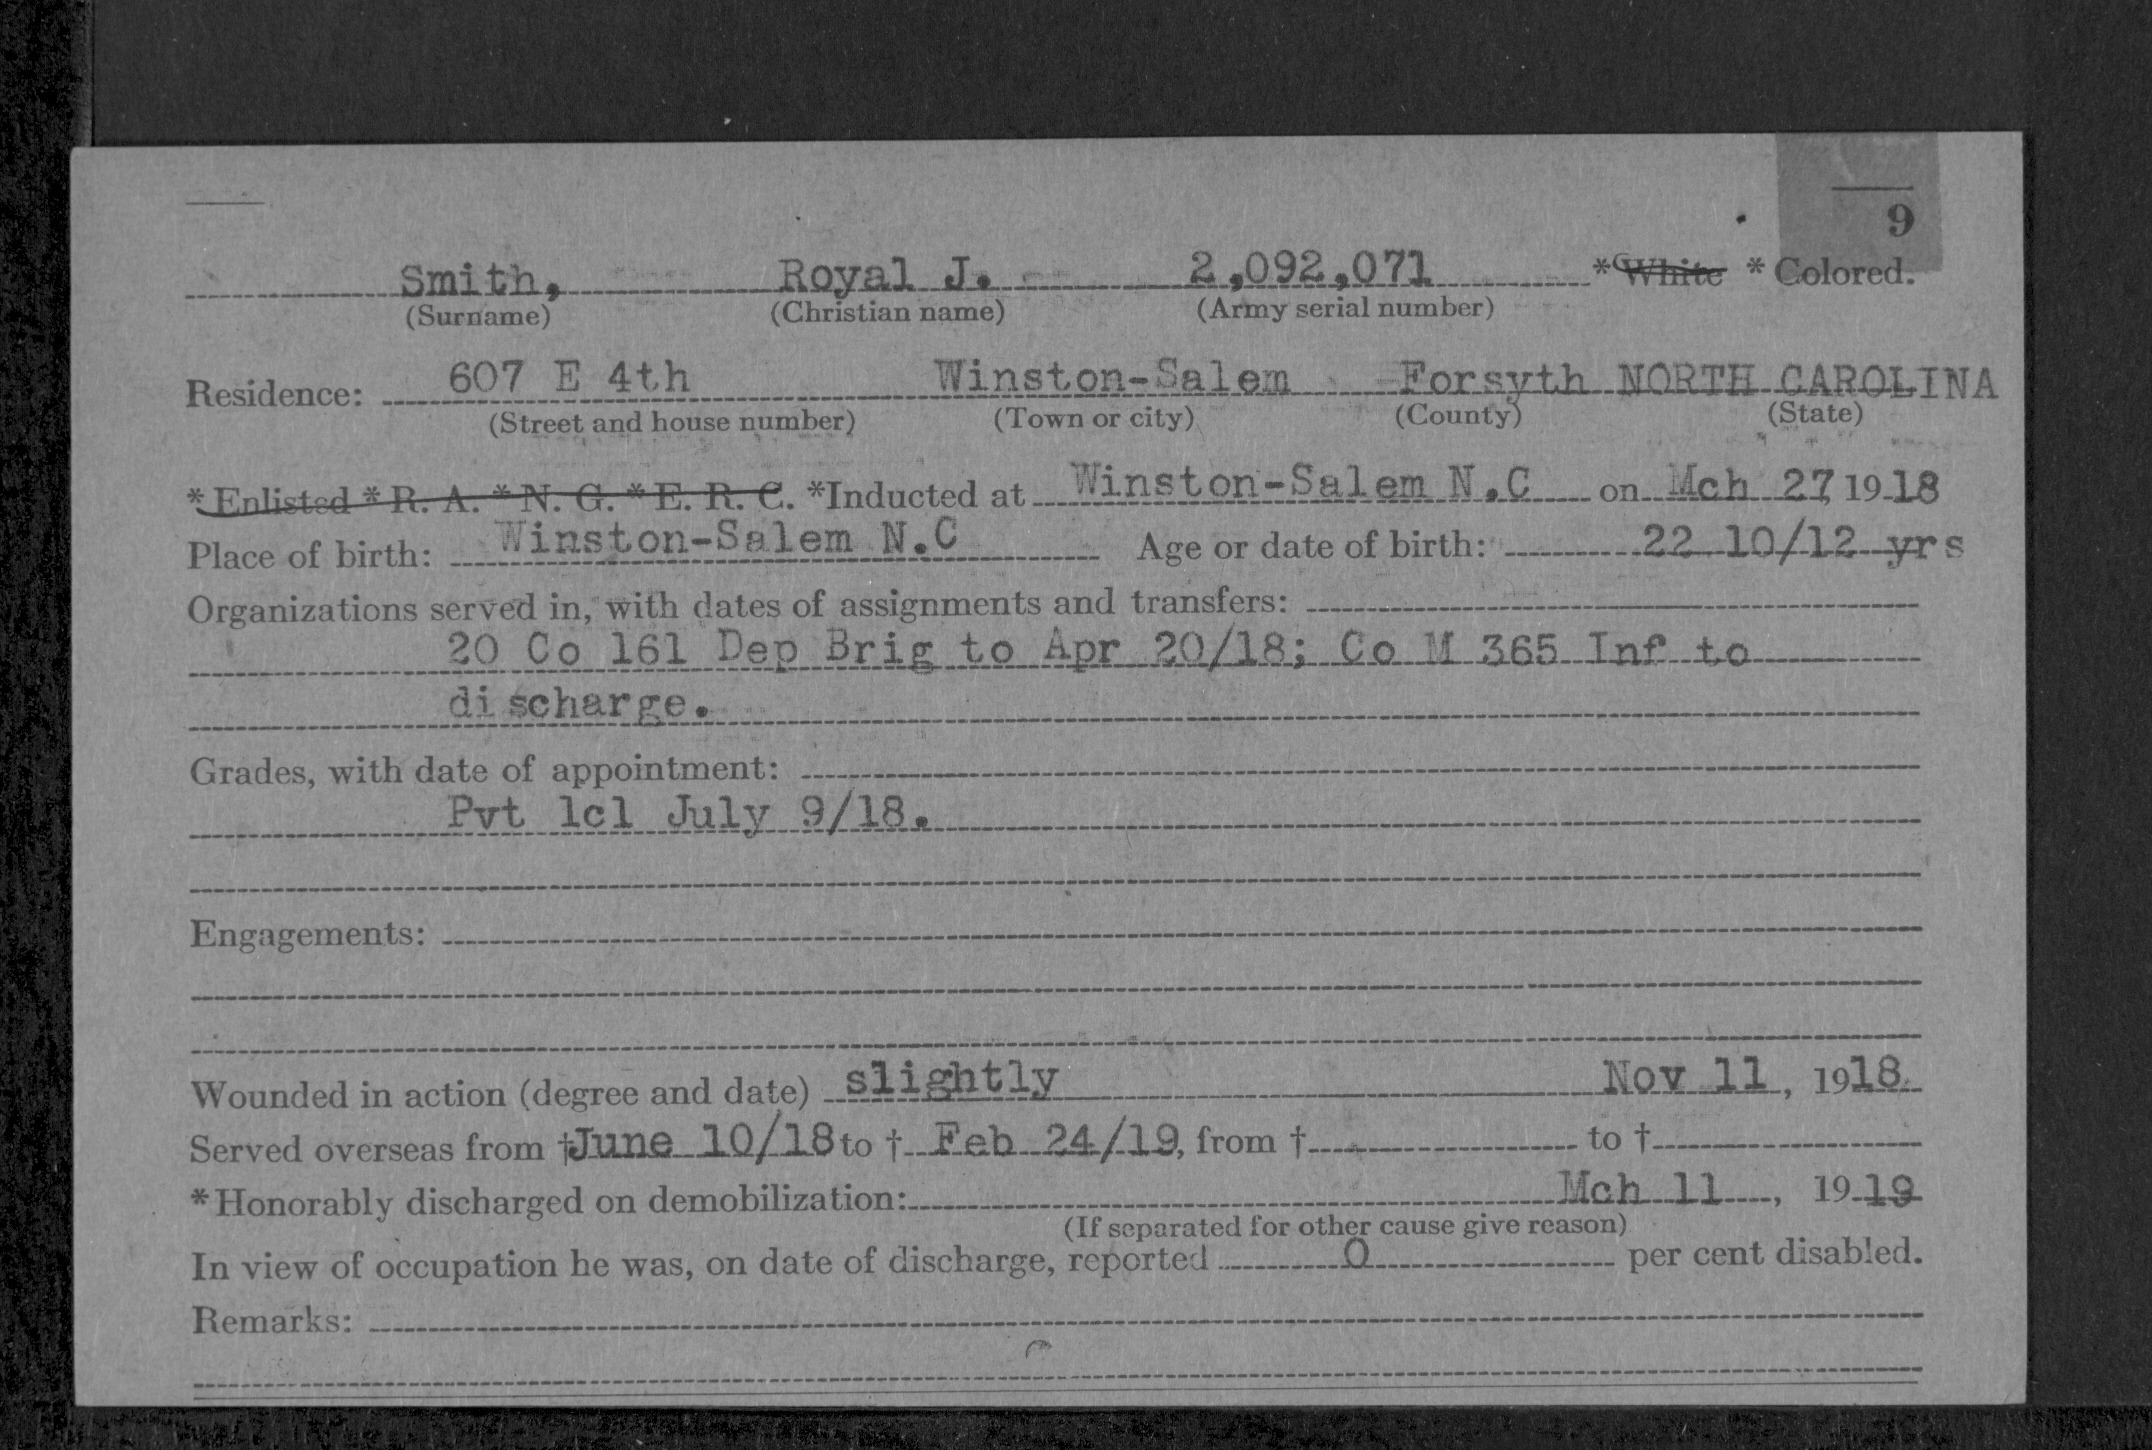 9
Smith, Royal J. 2,092,071 *White * Colored.
(Surname) (Christian name) (Army serial number)
Residence: 607 E 4th Winston-Salem Forsyth NORTH CAROLINA
(Street and house number) (Town or city) (County) (State)
*Enlisted *R. A. *N. G. *E. R. C. *Inducted at Winston-Salem N.C on Mch 27, 1918
Place of birth: Winston-Salem N.C Age or date of birth: 22 10/12 yrs
Organizations served in, with dates of assignments and transfers:
20 Co 161 Dep Brig to Apr 20/18; Co M 365 Inf to
discharge.
Grades, with date of appointment:
Pvt 1cl July 9/18.
Engagements:
Wounded in action (degree and date) slightly Nov 11, 1918
Served overseas from †June 10/18 to † Feb 24/19, from † to †
*Honorably discharged on demobilization: Mch 11, 1919
(If separated for other cause give reason)
In view of occupation he was, on date of discharge, reported 0 per cent disabled.
Remarks: